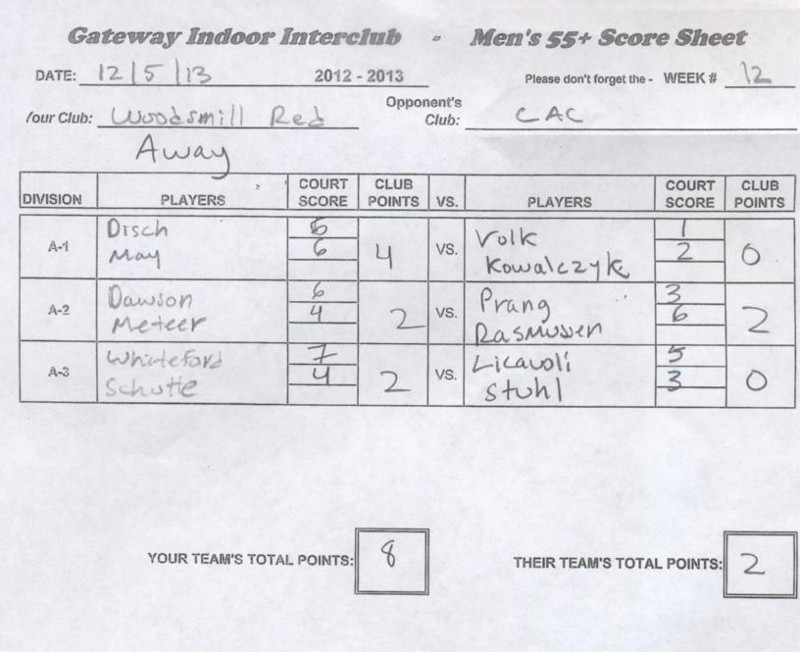 Gateway Indoor Interclub - Men's 55+ Score Sheet
DATE: 12/5/13 2012 - 2013 Please don't forget the - WEEK # 12
/our Club: Woodsmill Red Opponent's Club: CAC
Away
DIVISION PLAYERS COURT SCORE CLUB POINTS VS. PLAYERS COURT SCORE CLUB POINTS
A-1 Disch 6 4 VS. Volk 1 0
May 6 Kowalczyk 2
A-2 Dawson 6 2 VS. Prang 3 2
Meteer 4 Rasmussen 6
A-3 Whiteford 7 2 VS. Licavoli 5 0
Schutte 4 Stuhl 3
YOUR TEAM'S TOTAL POINTS: 8 THEIR TEAM'S TOTAL POINTS: 2